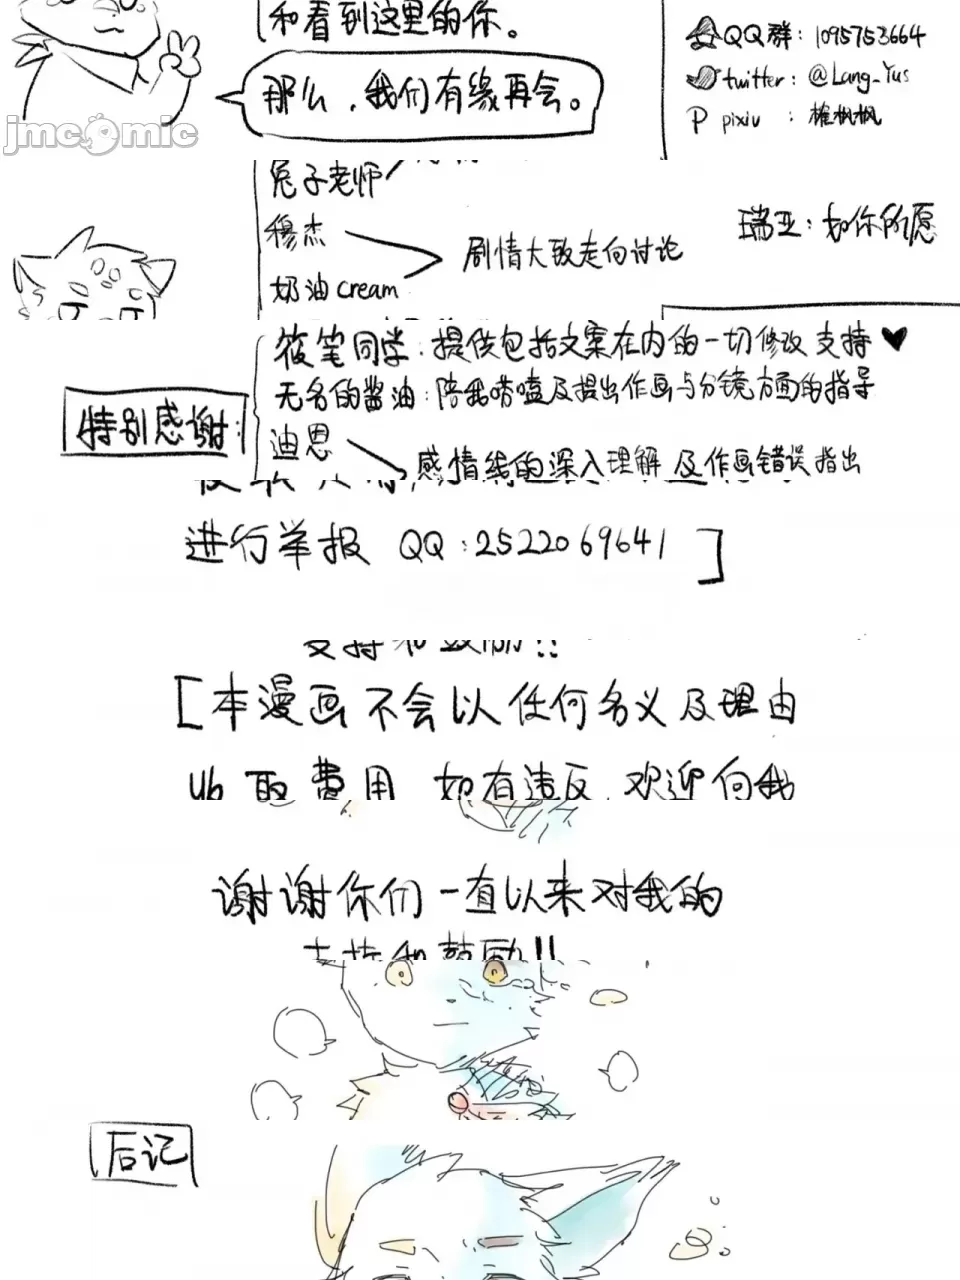 和看到这里的你。
那么，我们有缘再会。
QQ群：1095753664
twitter：@Lang_Yus
pixiv ：榷枫枫
jmcomic
兔子老师
穆杰
剧情大致走向讨论
奶油cream
瑞亚：如你所愿
筱笔同学：提供包括文案在内的一切修改支持♥
无名的酱油：陪我唠嗑及提出作画与分镜方面的指导
特别感谢：
迪恩
感情线的深入理解 及作画错误指出
进行举报 QQ：2522069641 ]
支持和鼓励!!
[本漫画不会以任何名义及理由
收取费用 如有违反 欢迎向我
谢谢你们一直以来对我的
支持和鼓励!!
后记